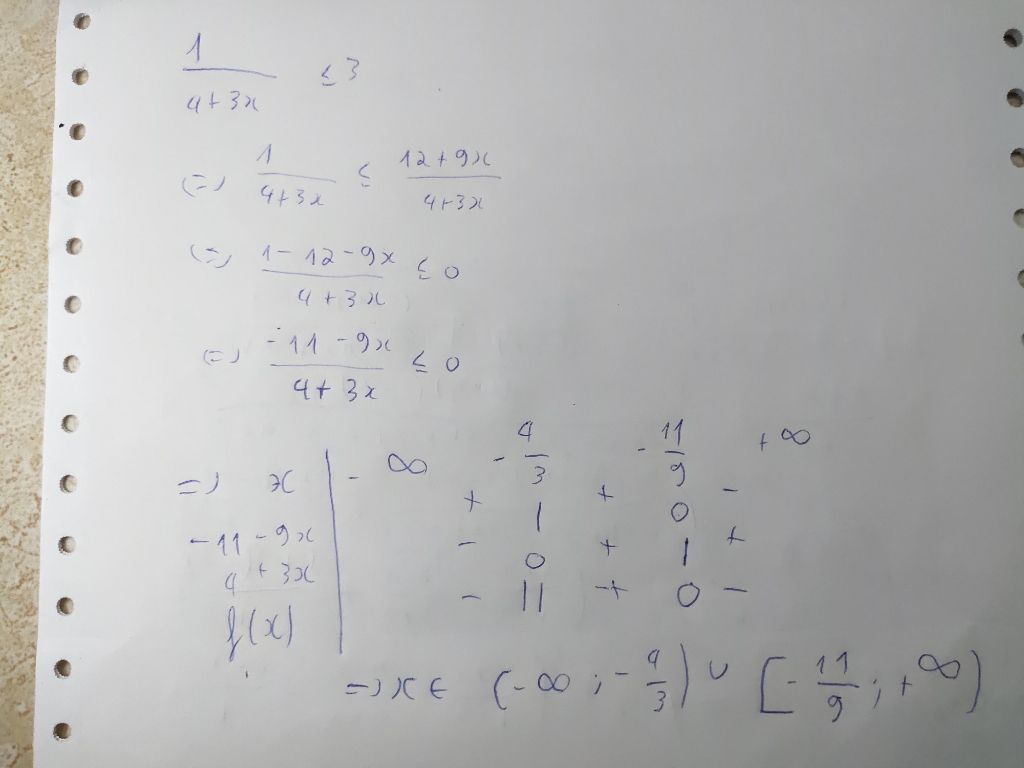 1/(4+3x) ≤ 3
<=> 1/(4+3x) ≤ (12+9x)/(4+3x)
<=> (1-12-9x)/(4+3x) ≤ 0
<=> (-11-9x)/(4+3x) ≤ 0
=> x | -∞ -4/3 -11/9 +∞
-11-9x | + | + 0 -
4+3x | - 0 + | +
f(x) | - || + 0 -
=> x ∈ (-∞ ; -4/3) ∪ [-11/9 ; +∞)